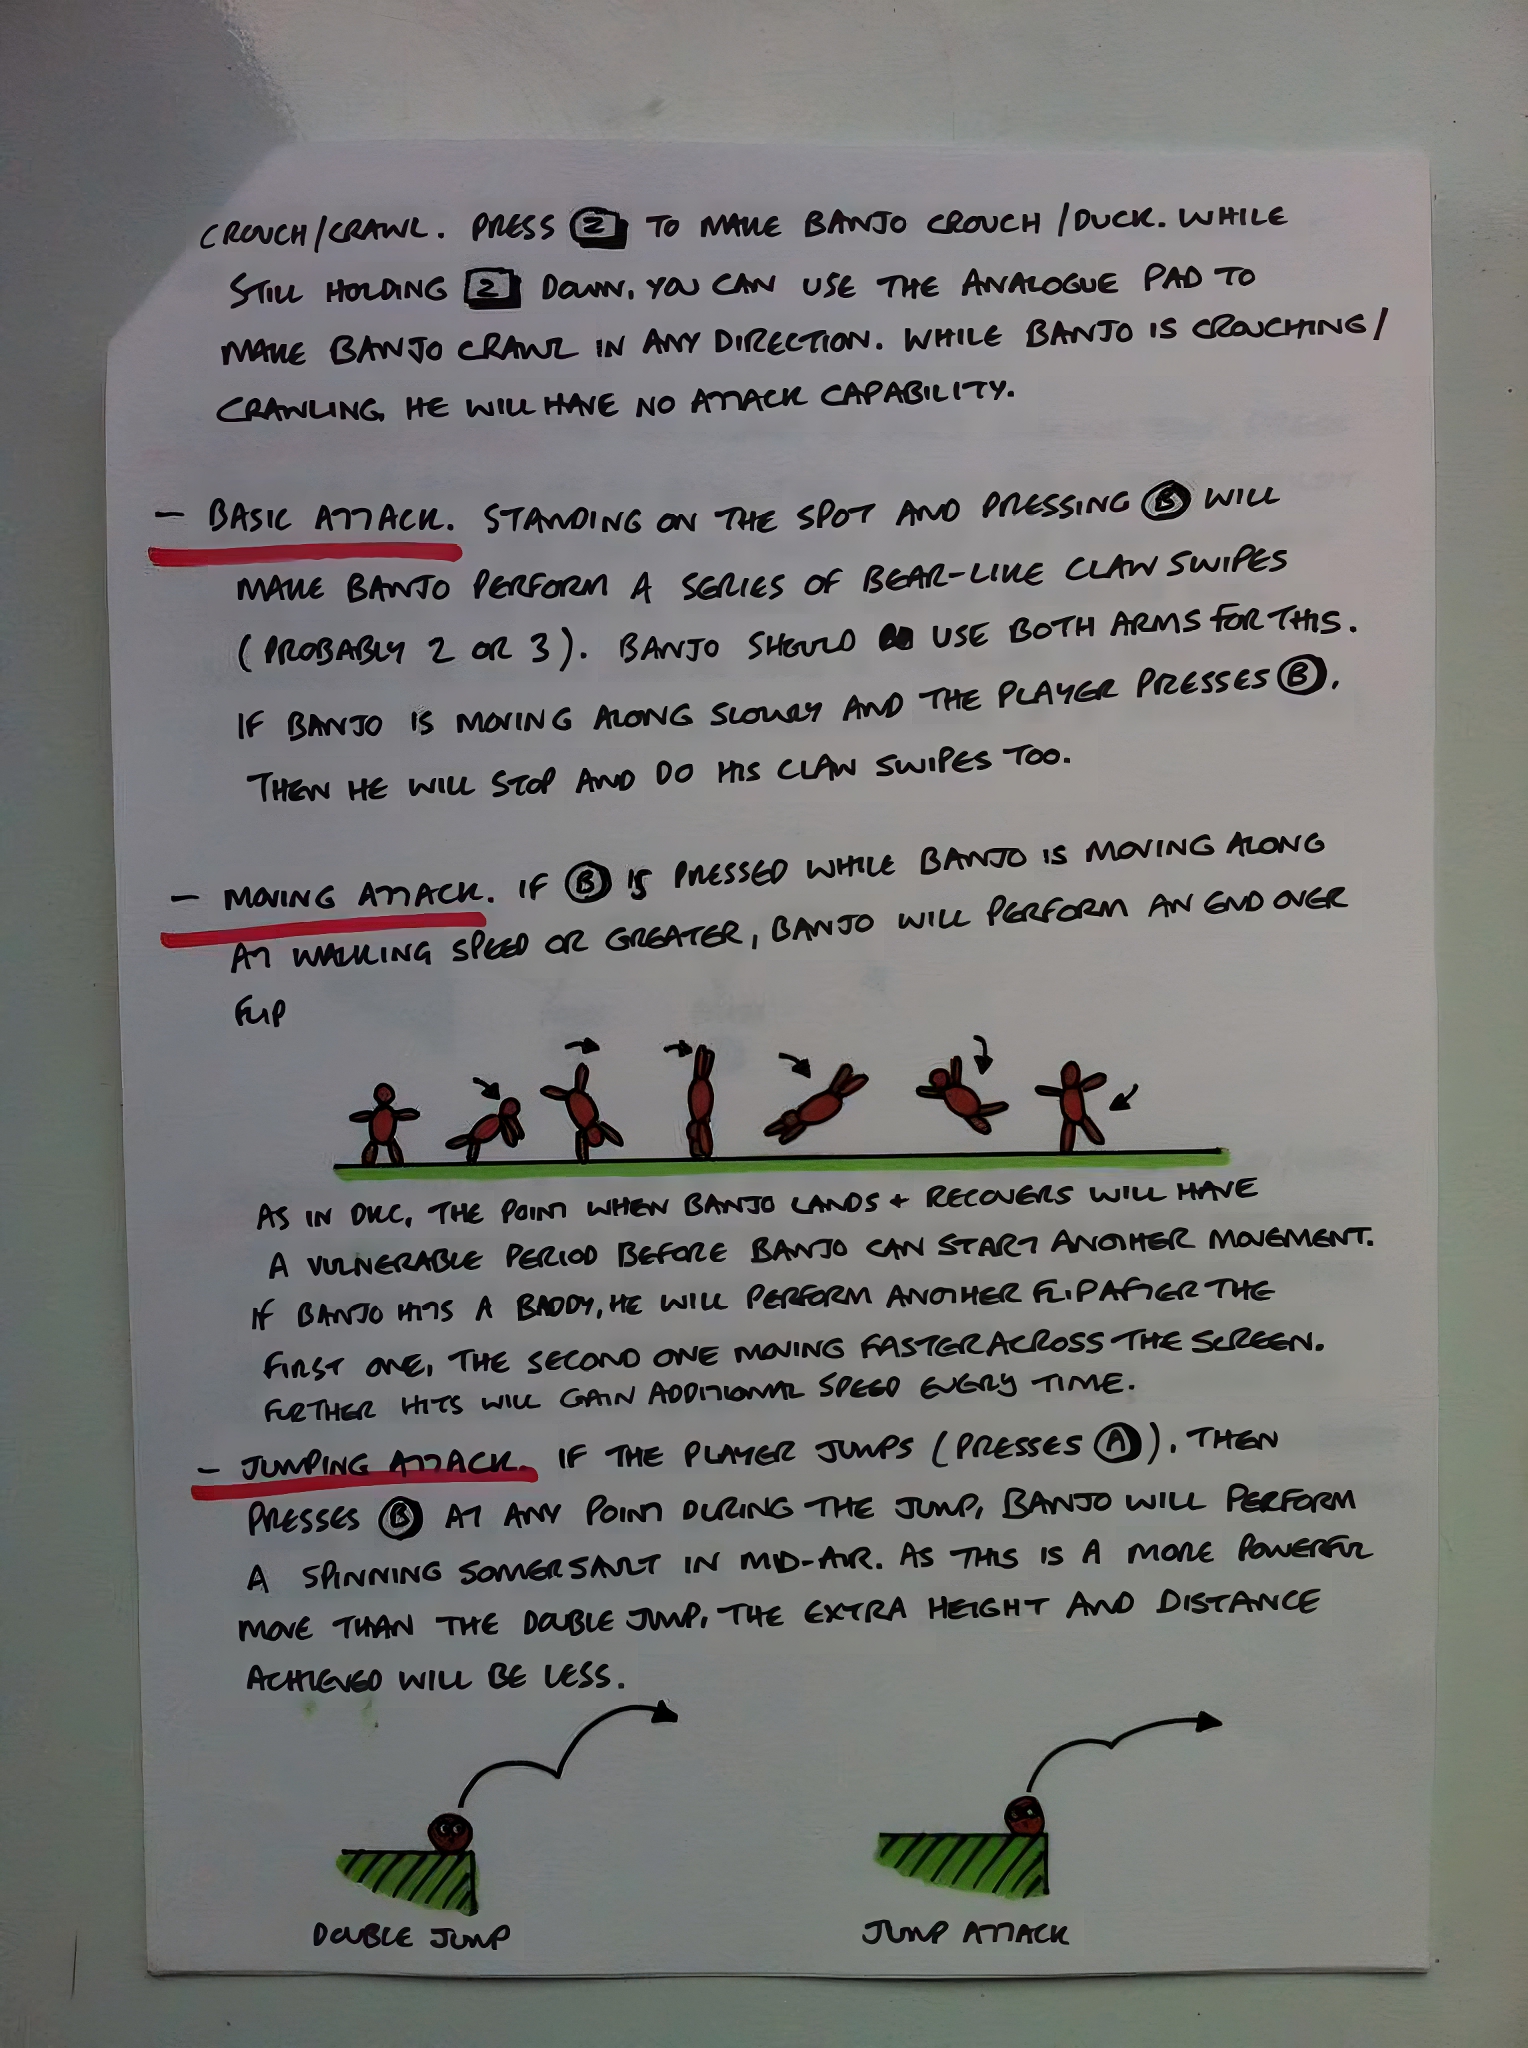 CROUCH/CRAWL. PRESS Z TO MAKE BANJO CROUCH/DUCK. WHILE
STILL HOLDING Z DOWN, YOU CAN USE THE ANALOGUE PAD TO
MAKE BANJO CRAWL IN ANY DIRECTION. WHILE BANJO IS CROUCHING/
CRAWLING, HE WILL HAVE NO ATTACK CAPABILITY.
– BASIC ATTACK. STANDING ON THE SPOT AND PRESSING B WILL
MAKE BANJO PERFORM A SERIES OF BEAR-LIKE CLAW SWIPES
(PROBABLY 2 OR 3). BANJO SHOULD USE BOTH ARMS FOR THIS.
IF BANJO IS MOVING ALONG SLOWLY AND THE PLAYER PRESSES B,
THEN HE WILL STOP AND DO HIS CLAW SWIPES TOO.
– MOVING ATTACK. IF B IS PRESSED WHILE BANJO IS MOVING ALONG
AT WALKING SPEED OR GREATER, BANJO WILL PERFORM AN END OVER
FLIP
AS IN DKC, THE POINT WHEN BANJO LANDS + RECOVERS WILL HAVE
A VULNERABLE PERIOD BEFORE BANJO CAN START ANOTHER MOVEMENT.
IF BANJO HITS A BADDY, HE WILL PERFORM ANOTHER FLIP AFTER THE
FIRST ONE, THE SECOND ONE MOVING FASTER ACROSS THE SCREEN.
FURTHER HITS WILL GAIN ADDITIONAL SPEED EVERY TIME.
– JUMPING ATTACK. IF THE PLAYER JUMPS (PRESSES A), THEN
PRESSES B AT ANY POINT DURING THE JUMP, BANJO WILL PERFORM
A SPINNING SOMERSAULT IN MID-AIR. AS THIS IS A MORE POWERFUL
MOVE THAN THE DOUBLE JUMP, THE EXTRA HEIGHT AND DISTANCE
ACHIEVED WILL BE LESS.
DOUBLE JUMP
JUMP ATTACK